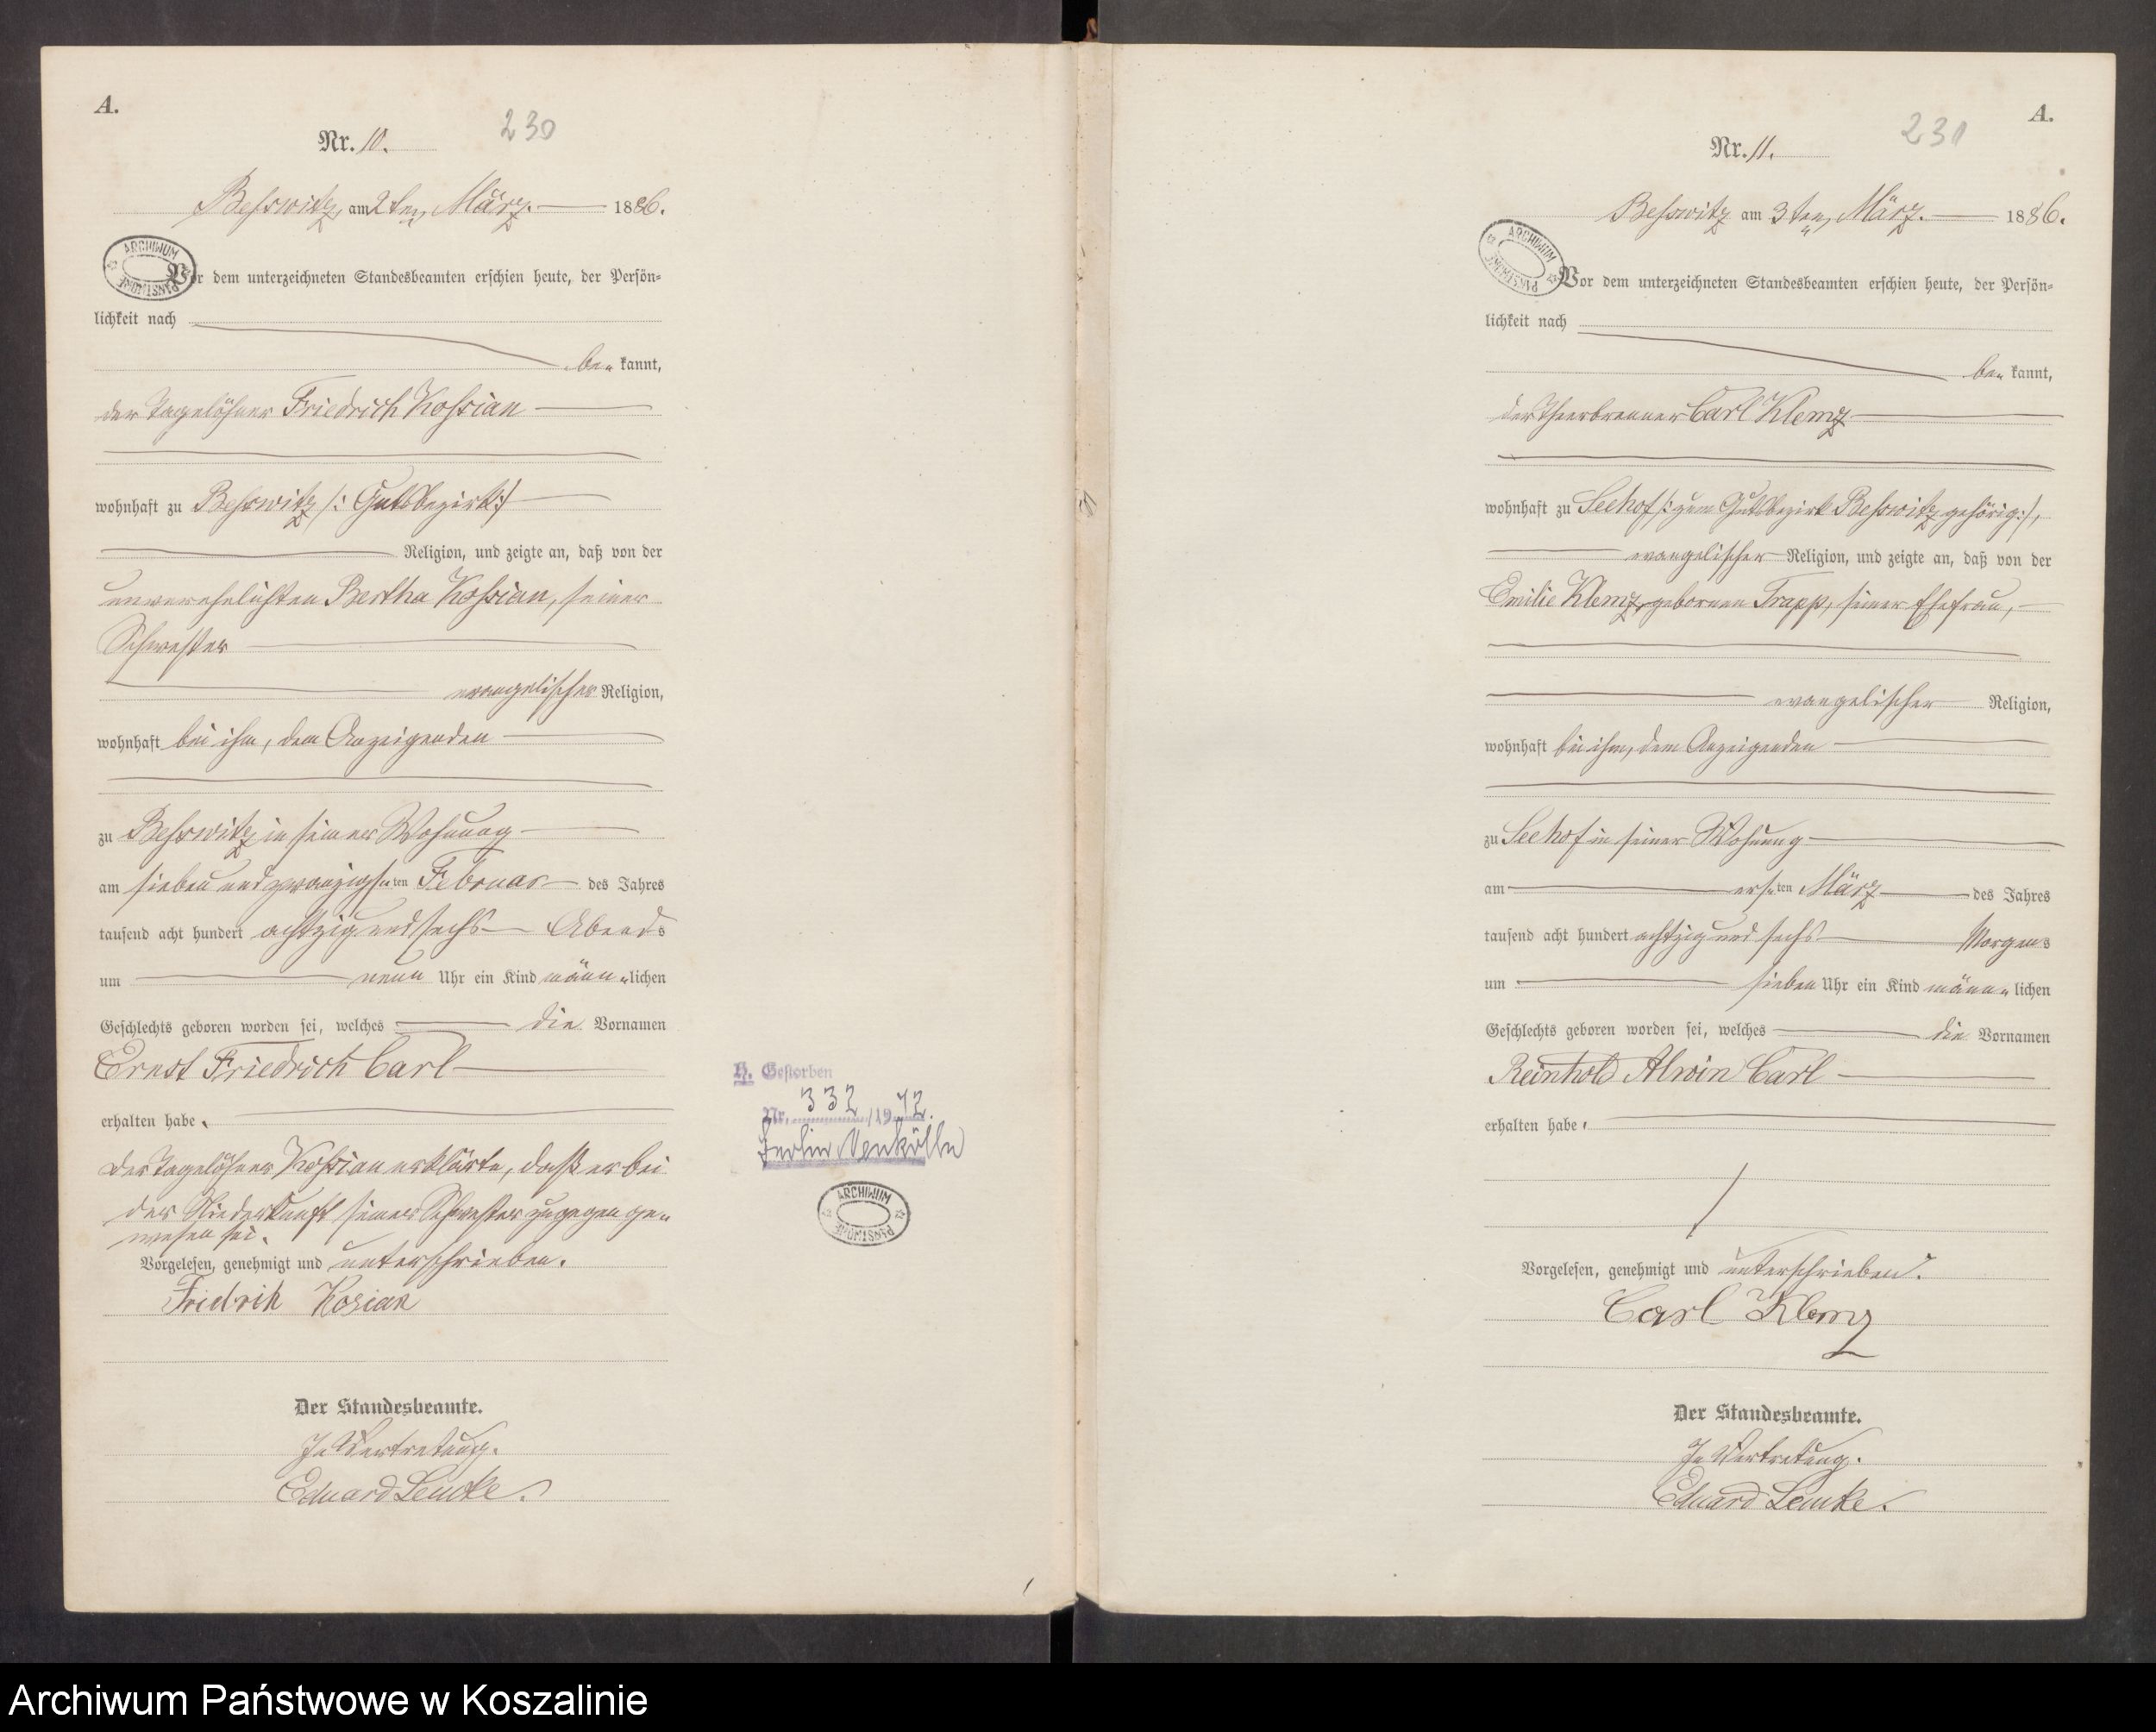 A.
Nr. 10.
230
Beßwitz, am 2ten März. 1886.
ARCHIWUM PAŃSTWOWE
Vor dem unterzeichneten Standesbeamten erschien heute, der Persön=
lichkeit nach
be= kannt,
der Tagelöhner Friedrich Koßian
wohnhaft zu Beßwitz /: Gutsbezirk :/
Religion, und zeigte an, daß von der
unverehelichten Bertha Koßian, seiner
Schwester
evangelischer Religion,
wohnhaft bei ihm, dem Anzeigenden
zu Beßwitz in seiner Wohnung
am sieben und zwanzigsten Februar des Jahres
tausend acht hundert achtzig und sechs Abends
um neun Uhr ein Kind männ=lichen
Geschlechts geboren worden sei, welches die Vornamen
Ernst Friedrich Carl
erhalten habe.
Der Tagelöhner Koßian erklärte, daß er bei
der Niederkunft seiner Schwester zugegen ge=
wesen sei.
Vorgelesen, genehmigt und unterschrieben.
Fridrih Kosian
Der Standesbeamte.
In Vertretung.
Eduard Lemke.
H. Gestorben
Nr. 332/1942.
Berlin Neukölln
ARCHIWUM PAŃSTWOWE
A.
Nr. 11.
231
Beßwitz am 3ten März. 1886.
ARCHIWUM PAŃSTWOWE
Vor dem unterzeichneten Standesbeamten erschien heute, der Persön=
lichkeit nach
be= kannt,
der Theerbrenner Carl Klemz
wohnhaft zu Seehof /: zum Gutsbezirk Beßwitz gehörig :/,
evangelischer Religion, und zeigte an, daß von der
Emilie Klemz, gebornen Trapp, seiner Ehefrau,
evangelischer Religion,
wohnhaft bei ihm, dem Anzeigenden
zu Seehof in seiner Wohnung
am ersten März des Jahres
tausend acht hundert achtzig und sechs Morgens
um sieben Uhr ein Kind männ=lichen
Geschlechts geboren worden sei, welches die Vornamen
Reinhold Alwin Carl
erhalten habe.
Vorgelesen, genehmigt und unterschrieben.
Carl Klemz
Der Standesbeamte.
In Vertretung.
Eduard Lemke.
Archiwum Państwowe w Koszalinie